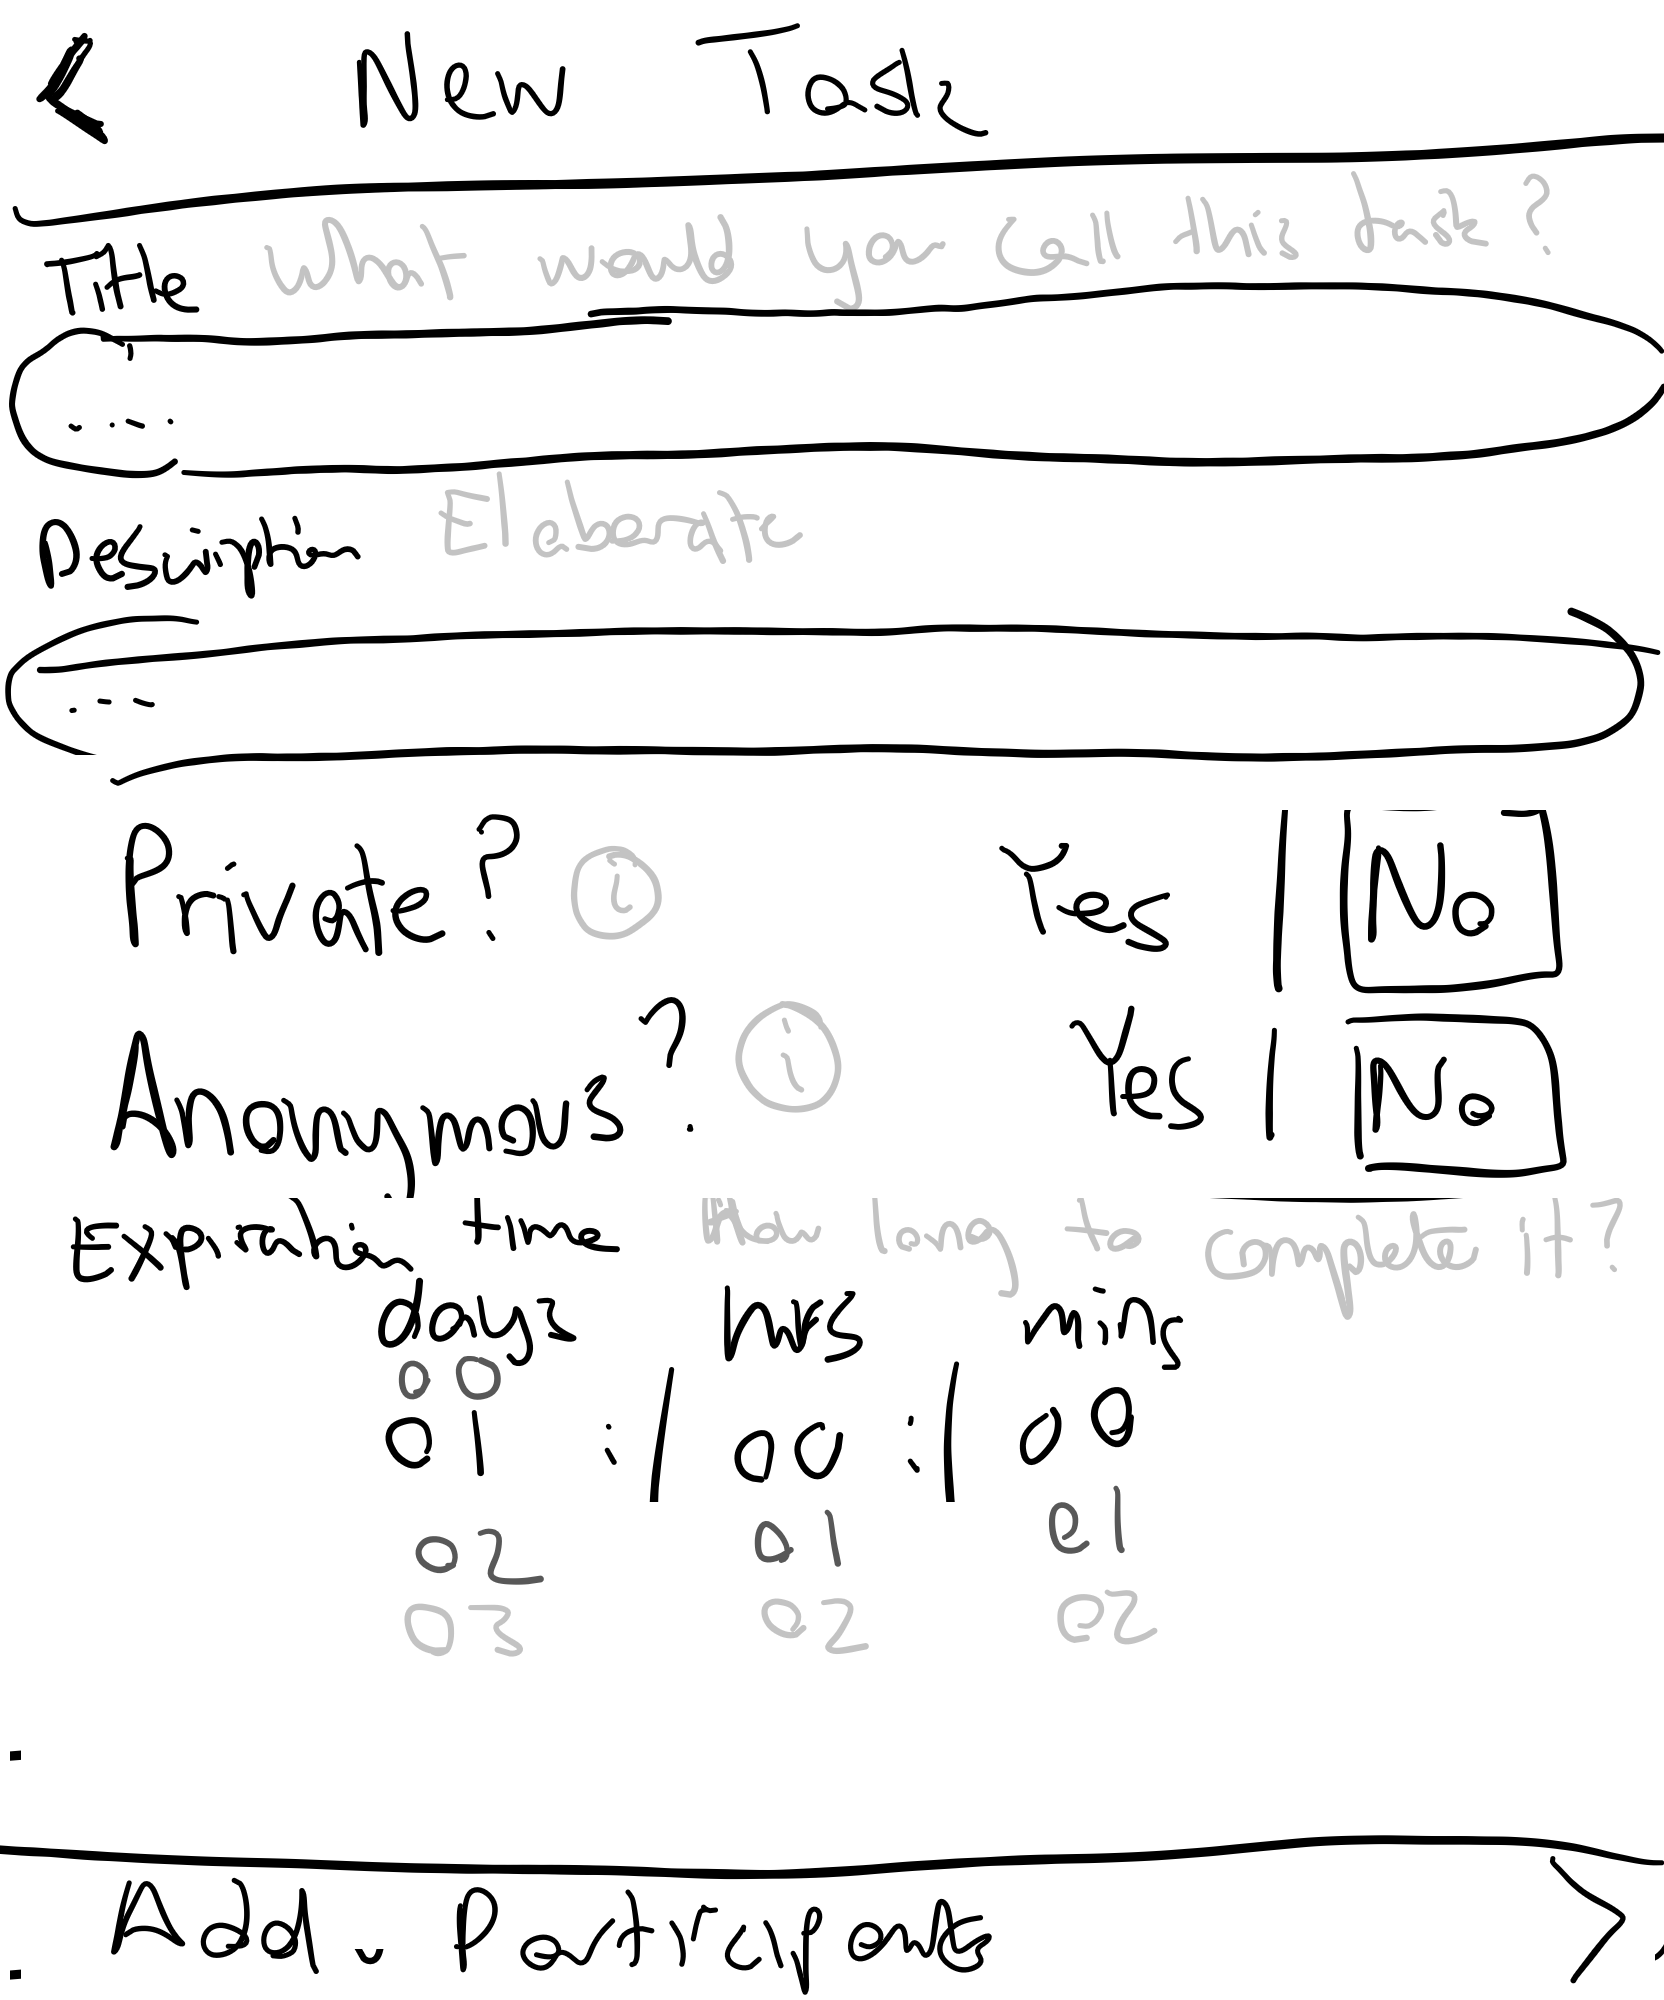 New Task
Title What would you call this task?
....
Description Elaborate
....
Private? i Yes | No
Anonymous? i Yes | No
Expiration time How long to complete it?
days hrs mins
00
01 : 00 : 00
02 01 01
03 02 02
Add Participants >